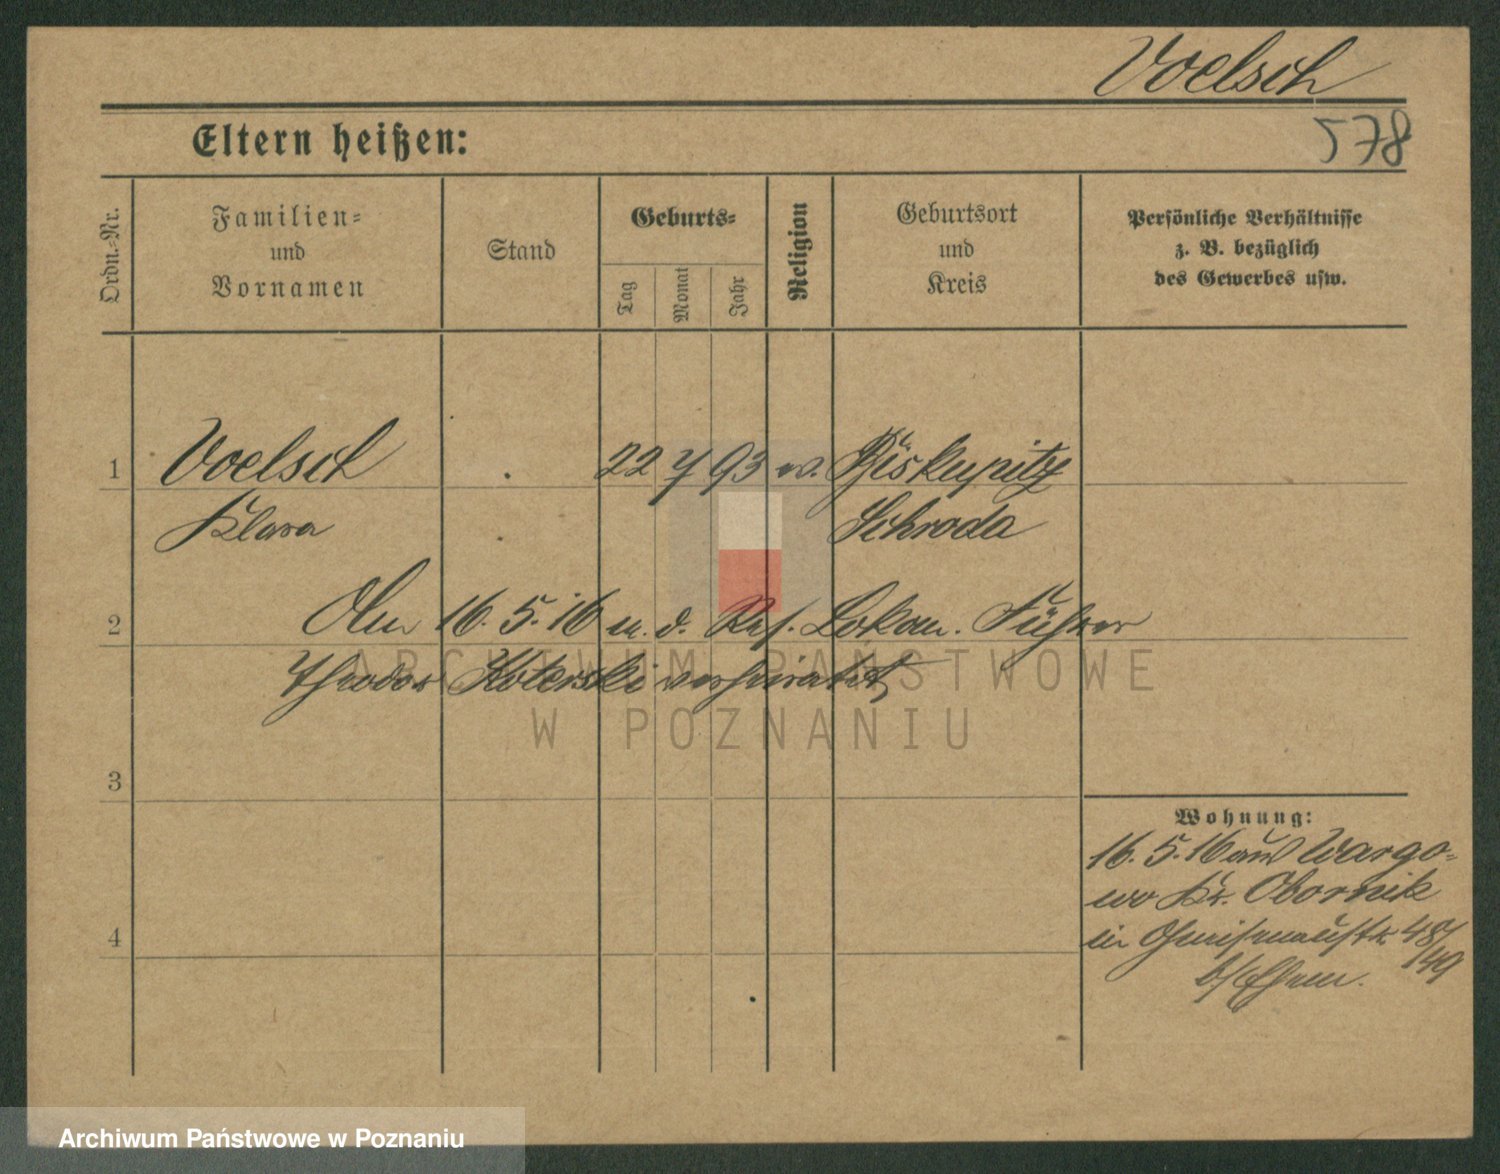 Voelsch
578
Eltern heißen:
Ordn.-Nr.
Familien-
und
Vornamen
Stand
Geburts-
Tag
Monat
Jahr
Religion
Geburtsort
und
Kreis
Persönliche Verhältnisse
z. B. bezüglich
des Gewerbes usw.
1 Voelsch 22 7 93 ev. Biskupitz
Klara Schroda
Am 16.5.16 m. d. Res. Lokom. Führer
2
Theodor Koterski verheiratet
ARCHIWUM PAŃSTWOWE
W POZNANIU
3
Wohnung:
16.5.16 aus Wargo-
wo Kr. Obornik
in 48/
49
b/Ehem.
4
Archiwum Państwowe w Poznaniu